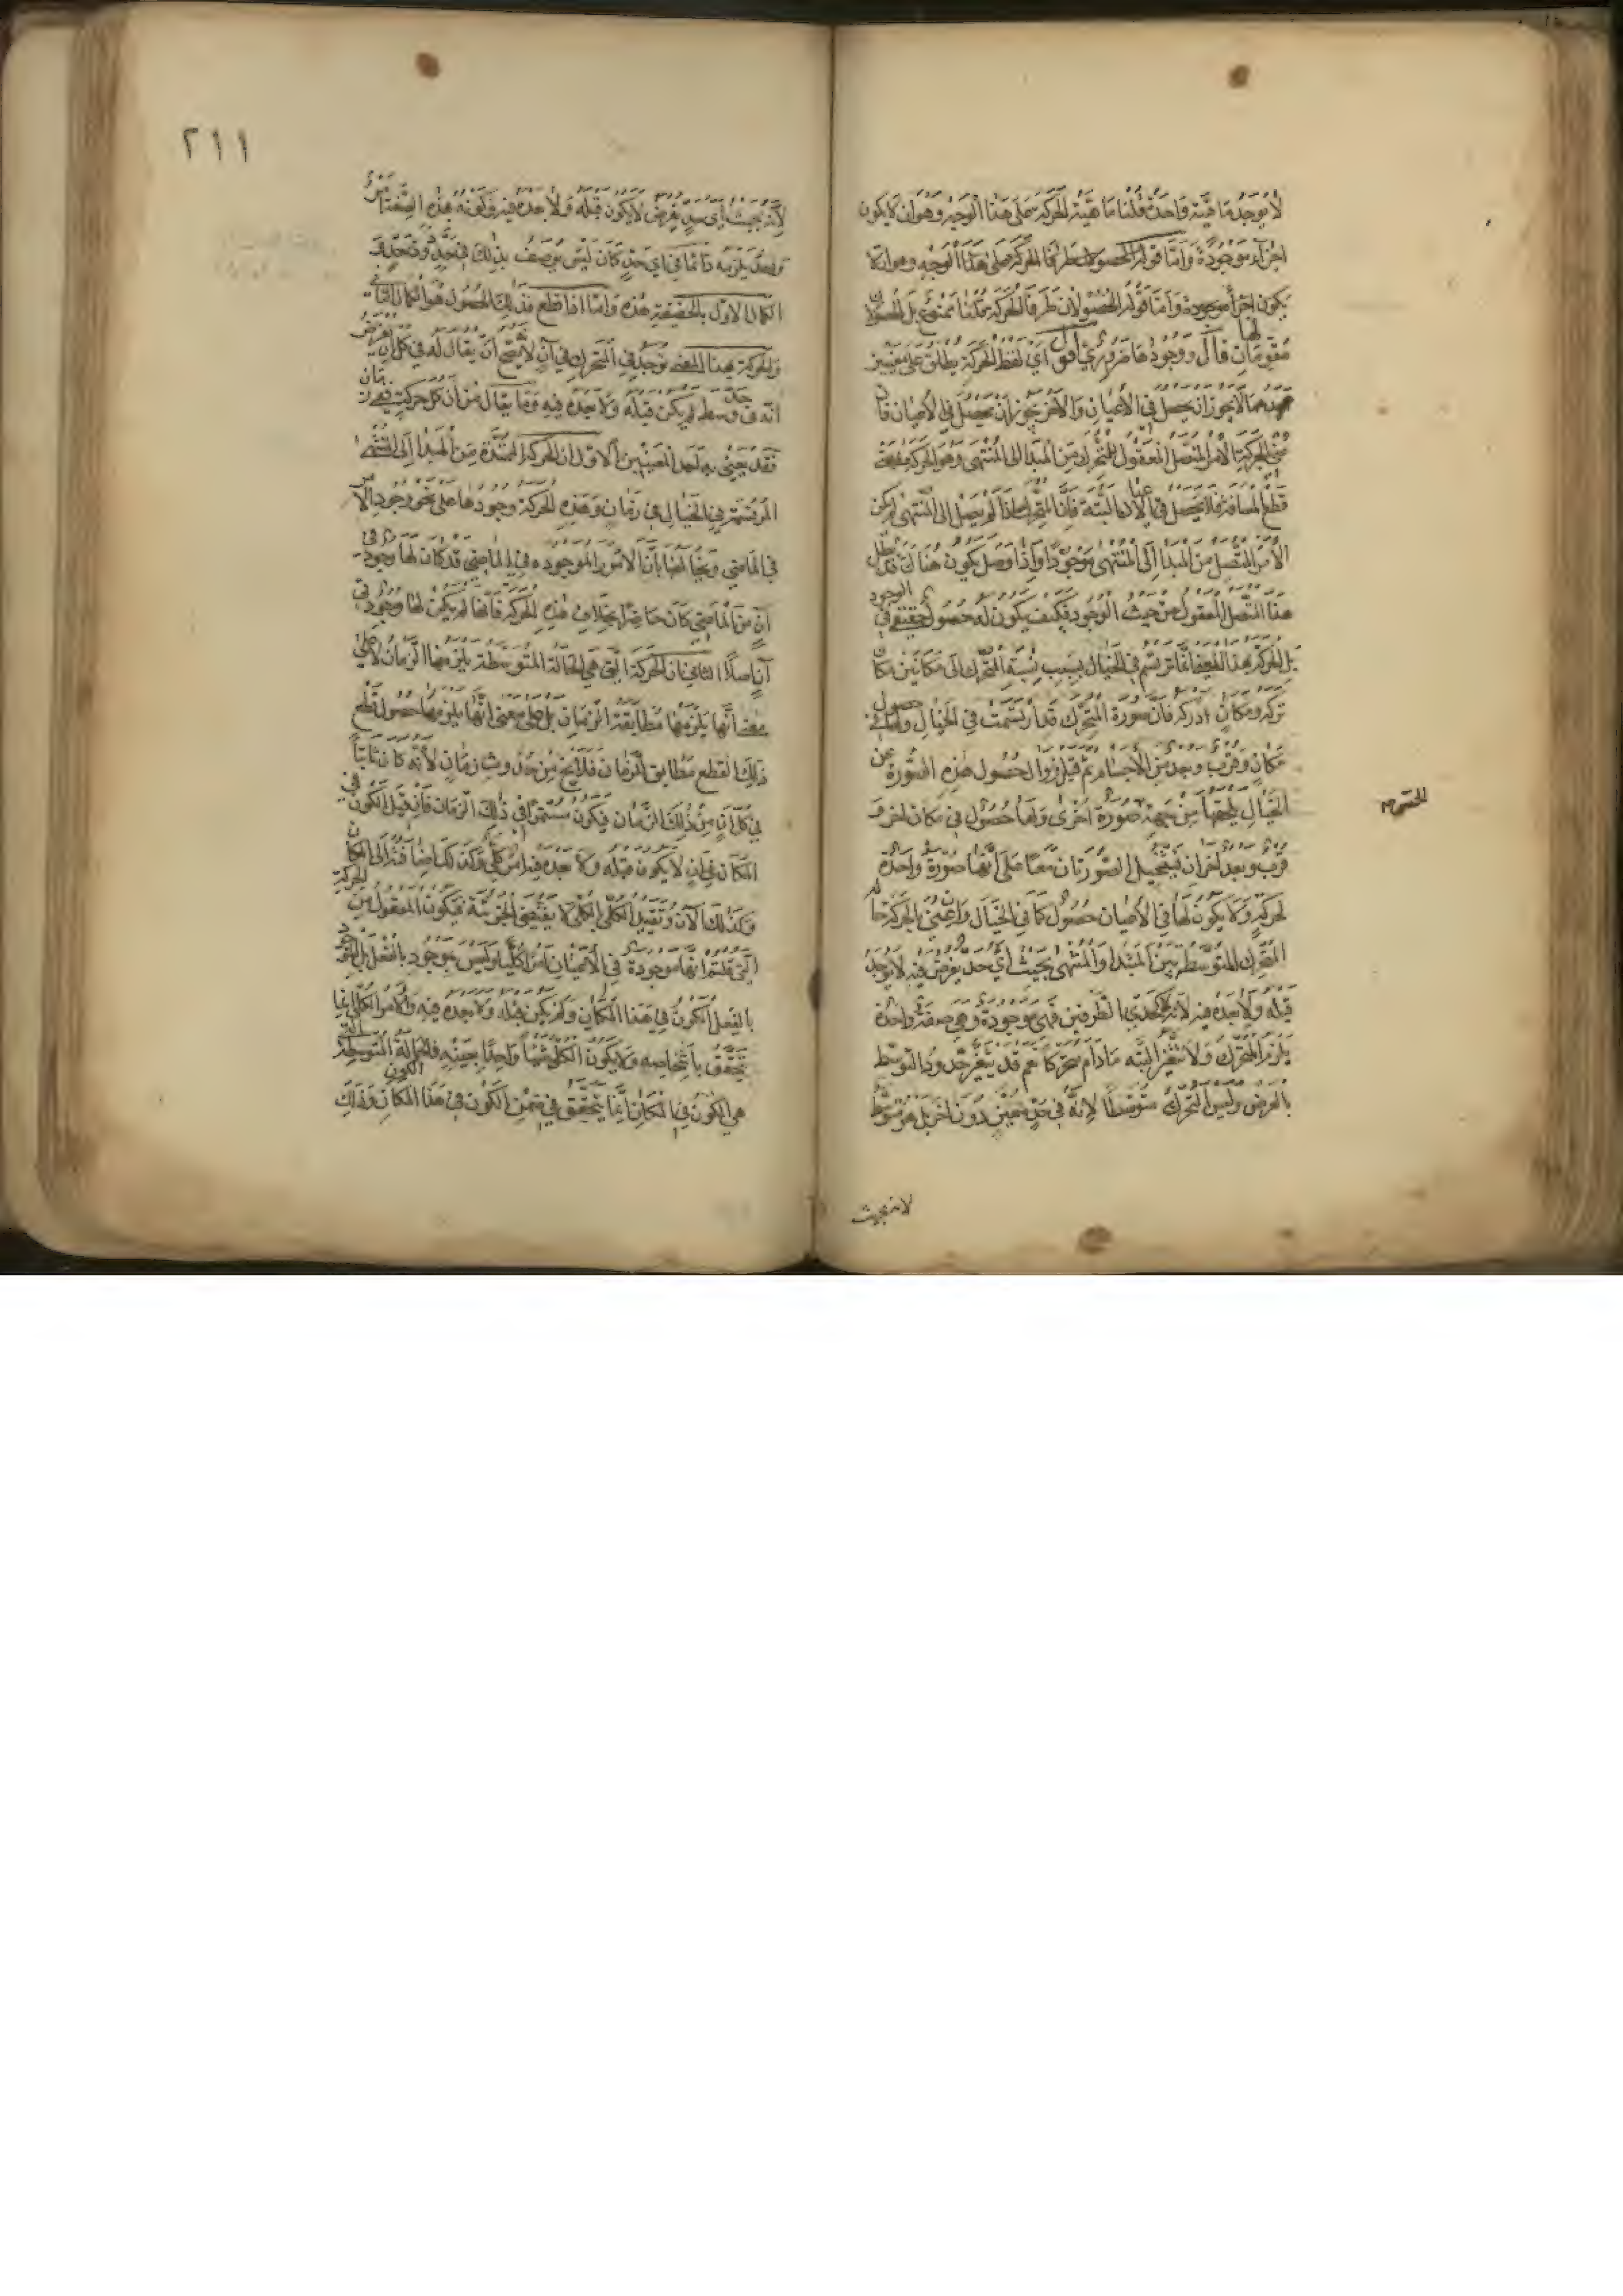 لا يوجد ماهية واحدة قلنا ماهية الحركة على هذا الوجه وهو ان لا يكون
اجزاء موجودة واما قوله الحصولان طرفا الحركة على هذا الوجه وهو ان لا
يكون اجزاء موجودة واما قوله الحصولان طرفا الحركة قلنا ممنوع بل الحصولان
لها
مقومان قال ووجودها ضروري اقول اي لفظ الحركة يطلق على معنيين
احدهما لا يجوز ان يحصل في الاعيان والاخر يجوز ان يحصل في الاعيان فان
عنى بالحركة الامر المتصل المعقول للمتحرك من المبدأ الى المنتهى وهو الحركة بمعنى
قطع المسافة فلا يحصل في الاعيان البتة فان المتحرك اذا لم يصل الى المنتهى لم يكن
الامر المتصل من المبدا الى المنتهى موجودا واذا وصل يكون هناك قد بطل
هذا المتصل المعقول من حيث الوجود فكيف يكون له حصول حقيقي في الوجود
بل الحركة بهذا المعنى انما ترتسم في الخيال بسبب نسبة المتحرك الى مكانين مكان
تركه ومكان ادركه فان صورة المتحرك قد ارتسمت في الخيال ولها حصول في
مكان وقرب وبعد من الاجسام ثم قبل زوال حصول هذه الصورة عن
الخيال يلحقها من جهة صورة اخرى ولها حصول في مكان اخر و
الحس صح
قرب وبعد اخران فيتخيل الصورتان معا على انها صورة واحدة
لحركة ولا يكون لها في الاعيان حصول كما في الخيال وان عنى بالحركة حالة
المتحرك المتوسطة بين المبدا والمنتهى بحيث اي حد يفرض فيه لا يوجد
قبله ولا بعده فيه لا كحدي الطرفين فهي موجودة وهي صفة واحدة
يلزم المتحرك ولا تتغير البتة ما دام متحركا نعم قد يتغير حدود التوسط
بالفرض وليس المتحرك متوسطا لانه في حد معين دون اخر بل هو متوسط
لانه بحيث
٢١١
لانه بحيث اي حد يفرض لا يكون قبله ولا بعده فيه وكونه بهذه الصفة امر
واحد يلزمه دائما في اي حد كان ليس يوصف بذلك في حد دون حد و
الكمال الاول بالحقيقة هذه واما اذا قطع فذلك الحصول هو الكمال الثاني
والحركة بهذا المعنى توجد في المتحرك في آن لانه يصح ان يقال له في كل آن يفرض
انه في حد وسط لم يكن قبله ولا بعده فيه وما يقال من ان كل حركة في زمان
فقد يعنى به احد المعنيين الاول ان الحركة الممتدة من المبدا الى المنتهى
المرتسمة في الخيال هي في زمان وهذه الحركة وجودها على نحو وجود الامر
في الماضي وتخالفها بان الامور الموجودة في الماضي قد كان لها وجود في
آن من الماضي كان حاضرا بخلاف هذه الحركة فانها لم يكن لها وجود في
آن اصلا الثاني ان الحركة التي هي الحالة المتوسطة يلزمها الزمان لا على
معنى انها يلزمها مطابقة الزمان بل على معنى انها يلزمها حصول قطع
ذلك القطع مطابق للزمان فلا يخ من حدوث زمان لانه كان ثابتا
في كل آن من ذلك الزمان فيكون مستمرا في ذلك الزمان فان قيل الكون في
المكان في آن لا يكون قبله ولا بعده فيه امر كلي وكذلك اضافته الى المكان
وكذلك الآن وتقييد الكلي بالكلي لا يقتضي الجزئية فيكون المعقول من الحركة
التي قلتم انها موجودة في الاعيان امرا كليا وليس بموجود بالفعل بل الموجود
بالفعل الكون في هذا المكان ولم يكن قبله ولا بعده فيه والامر الكلي انما
يتحقق باشخاصه ولا يكون الكلي شيئا واحدا بعينه فالحالة المتوسطة التي
هي الكون في المكان انما يتحقق في ضمن الكون في هذا المكان وذلك الكون